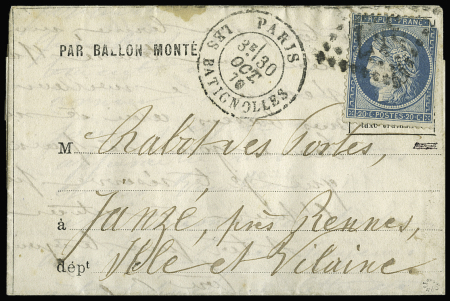 PAR BALLON MONTÉ
PARIS
LES BATIGNOLLES
3E 30
OCT.
70
REPUB. FRANC.
20 C. POSTES 20 C.
M Rabot des Portes,
à Janzé, près Rennes,
dépt Ille et Vilaine